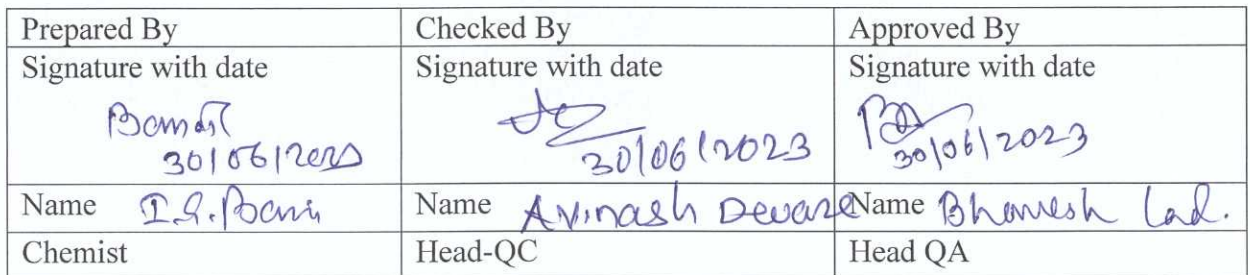 Prepared By Checked By Approved By
Signature with date Signature with date Signature with date
30/06/2023 30/06/2023
Name Name Avinash Devare Name Bhavesh Lad.
Chemist Head-QC Head QA